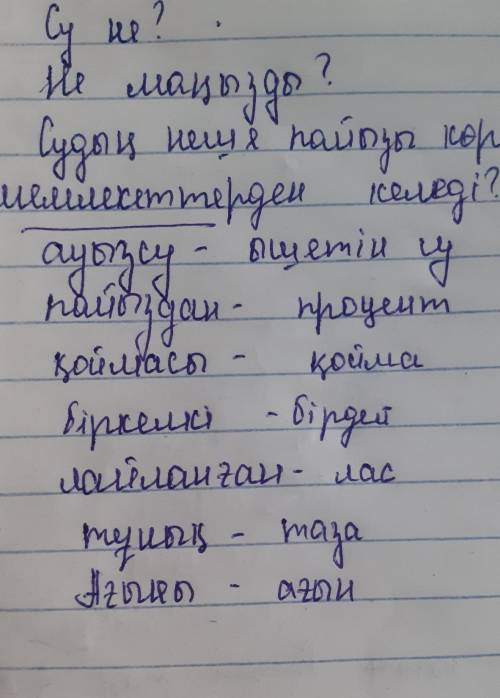 Су не?
Не маңызды?
Судың неше пайызы көр
мемлекеттерден келеді?
ауызсу - ышетін су
пайыздан - процент
қоймасы - қойма
біркелкі - бірдей
лайланған - лас
тұнық - таза
Ағыны - ағын